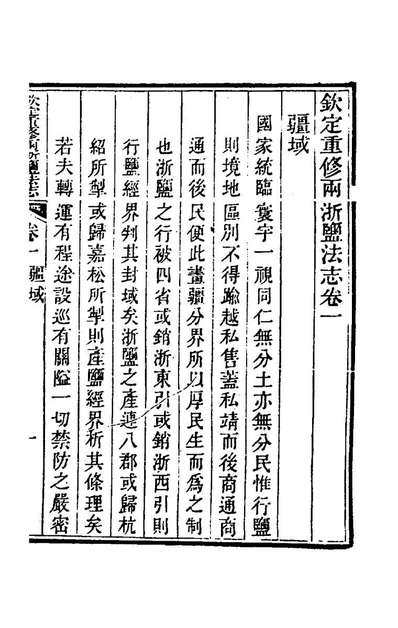 欽定重修兩浙鹽法志卷一
疆域
國家統臨寰宇一視同仁無分土亦無分民惟行鹽
則境地區別不得踰越私售蓋私靖而後商通商
通而後民便此畫疆分界所以厚民生而爲之制
也浙鹽之行被四省或銷浙東引或銷浙西引則
行鹽經界判其封域矣浙鹽之產遶八郡或歸杭
紹所掣或歸嘉松所掣則產鹽經界析其條理矣
若夫轉運有程途設巡有關隘一切禁防之嚴密
欽定重修兩浙鹽法志
卷一 疆域
一